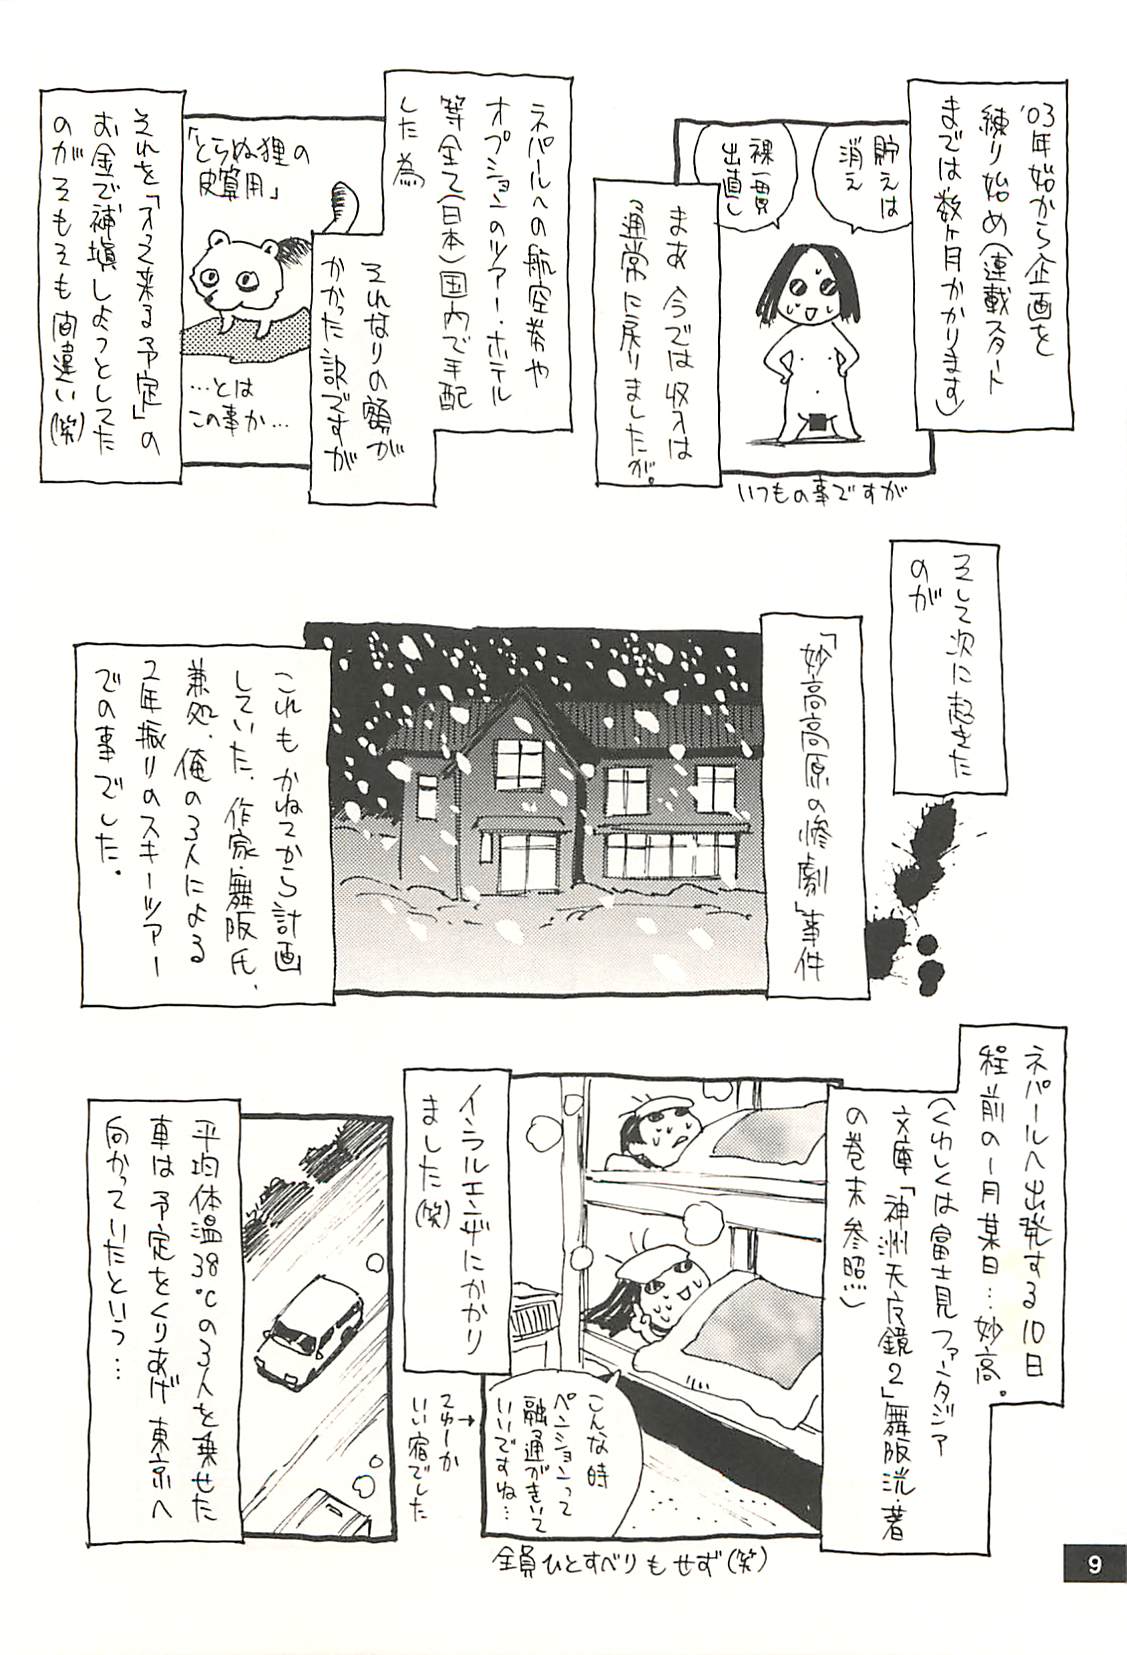 '03年始から企画を
練り始め(連載スタート
までは数ヶ月かかります)
貯えは
消え
裸一貫
出直し
いつもの事ですが
まあ 今では収入は
通常に戻りましたが。
ネパールへの航空券や
オプションのツアー・ホテル
等全て(日本)国内で手配
した為
それなりの額が
かかった訳ですが
「とらぬ狸の
皮算用」
…とは
この事か…
それを「入って来る予定」の
お金で補填しようとしてた
のがそもそも間違い(笑)
そして次に起きた
のが
「妙高高原の惨劇」事件
これもかねてから計画
していた、作家・舞阪氏、
兼処、俺の3人による
2年振りのスキーツアー
での事でした。
ネパールへ出発する10日
程前の1月某日…妙高。
(くわしくは富士見ファンタジア
文庫「神洲天辰鏡2」舞阪洸・著
の巻末参照)
こんな時
ペンションって
融通がきいて
いいですね…
全員ひとすべりもせず(笑)
インフルエンザにかかり
ました(笑)
→てゆーか
いい宿でした
平均体温38℃の3人を乗せた
車は予定をくりあげ東京へ
向かっていたという…
9